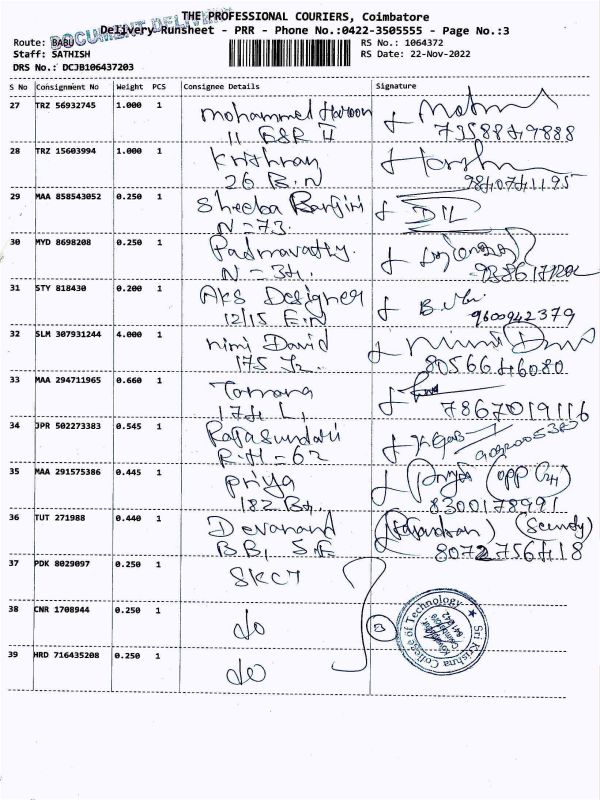 THE PROFESSIONAL COURIERS, Coimbatore
DOCUMENT DELIVERY
Delivery Runsheet - PRR - Phone No.:0422-3505555 - Page No.:3
Route: BABU
RS No.: 1064372
Staff: SATHISH
RS Date: 22-Nov-2022
DRS No.: DCJB106437203
S No Consignment No Weight PCS Consignee Details Signature
27 TRZ 56932745 1.000 1 Mohammed Haroon
11 GSR II 7358849888
28 TRZ 15603994 1.000 1
26 B.N 9840741195
29 MAA 858543052 0.250 1 Sheeba DIL
N - 73.
30 MYD 8698208 0.250 1 Padmavathy.
N - 34.
31 STY 818430 0.200 1 Aks Designer
12/15 E.N 9600942379
32 SLM 307931244 4.000 1 Nimi David Nimi
175 8056646080
33 MAA 294711965 0.660 1
174 L, 7867019116
34 JPR 502273383 0.545 1 Rajasundari
R.H - 62
35 MAA 291575386 0.445 1 Priya Priya (opp
182 8300178991
36 TUT 271988 0.440 1 Devanand
BB, 8072756418
37 PDK 8029097 0.250 1 SKCT
38 CNR 1708944 0.250 1 do
Sri Krishna College of Technology
Coimbatore
641 042
39 HRD 716435208 0.250 1 do